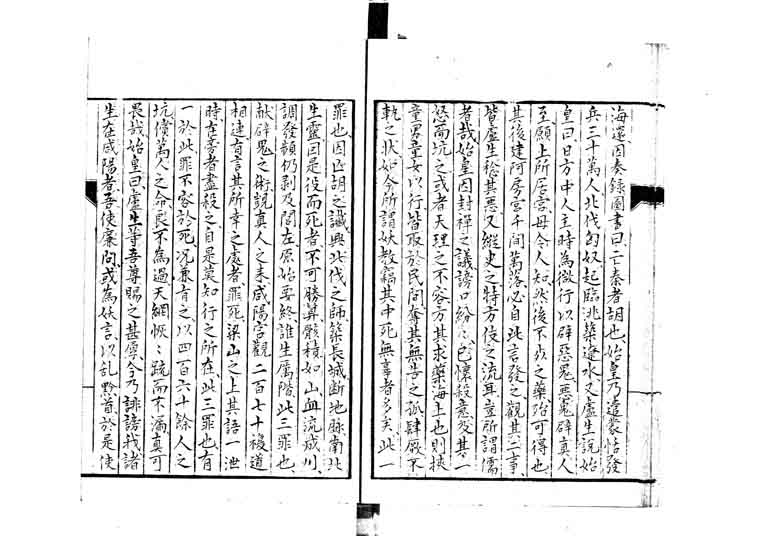 海還因奏錄圖書曰亡秦者胡也始皇乃遣蒙恬發
兵三十萬人北伐匈奴起臨洮築遼水又盧生說始
皇曰方中人主時為微行以辟惡鬼惡鬼辟真人
至願上所居宮毋令人知然後不死之藥殆可得也
其後建阿房宮千間萬落必自此言發之觀其二事
皆盧生稔其惡又縱臾之特方伎之流耳豈所謂儒
者哉始皇因封禪之議謗口紛々已懷殺意及其一
怒而坑之或者天理之不容方其求藥海上也則挾
童男童女以行皆取於民間奪其無告之孤肆厥不
軌之狀如今所謂妖教竊其中死無辜者多矣此一
罪也因亡胡之讖興北伐之師築長城斷地脉南北
生靈因是役而死者不可勝算骸積如山血流成川
調發頻仍剥及閭左原始要終誰生厲階此三罪也
献辟鬼之術說真人之来咸陽宮觀二百七十複道
相連有言其所幸之處者罪死梁山之上其語一泄
時在旁者盡殺之自是莫知行之所在此三罪也有
一於此罪不容於死况兼有之以四百六十餘人之
坑償萬人之命良不為過天網恢々䟽而不漏真可
畏哉始皇曰盧生等吾尊賜之甚厚今乃誹謗我諸
生在咸陽者吾使廉問或為妖言以乱黔首於是使